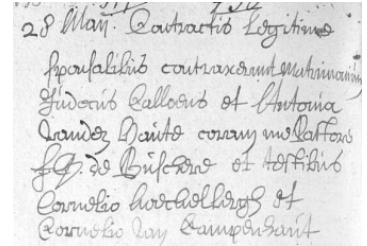 28 Maii. Contractis legitime
sponsalibus contraxerunt matrimonium
Judocus Callaeus et Antonia
Vander Haute coram me Pastore
de Buschere et testibus
Cornelio et
Cornelio Van Campenhaut